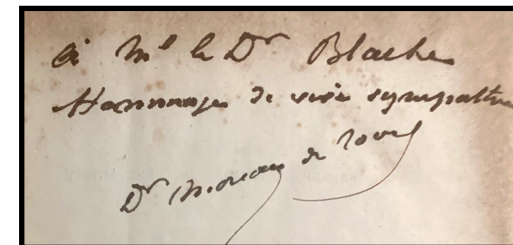 à Mr le Dr Blache
Hommage de vive sympathie
Dr Moreau de Tours